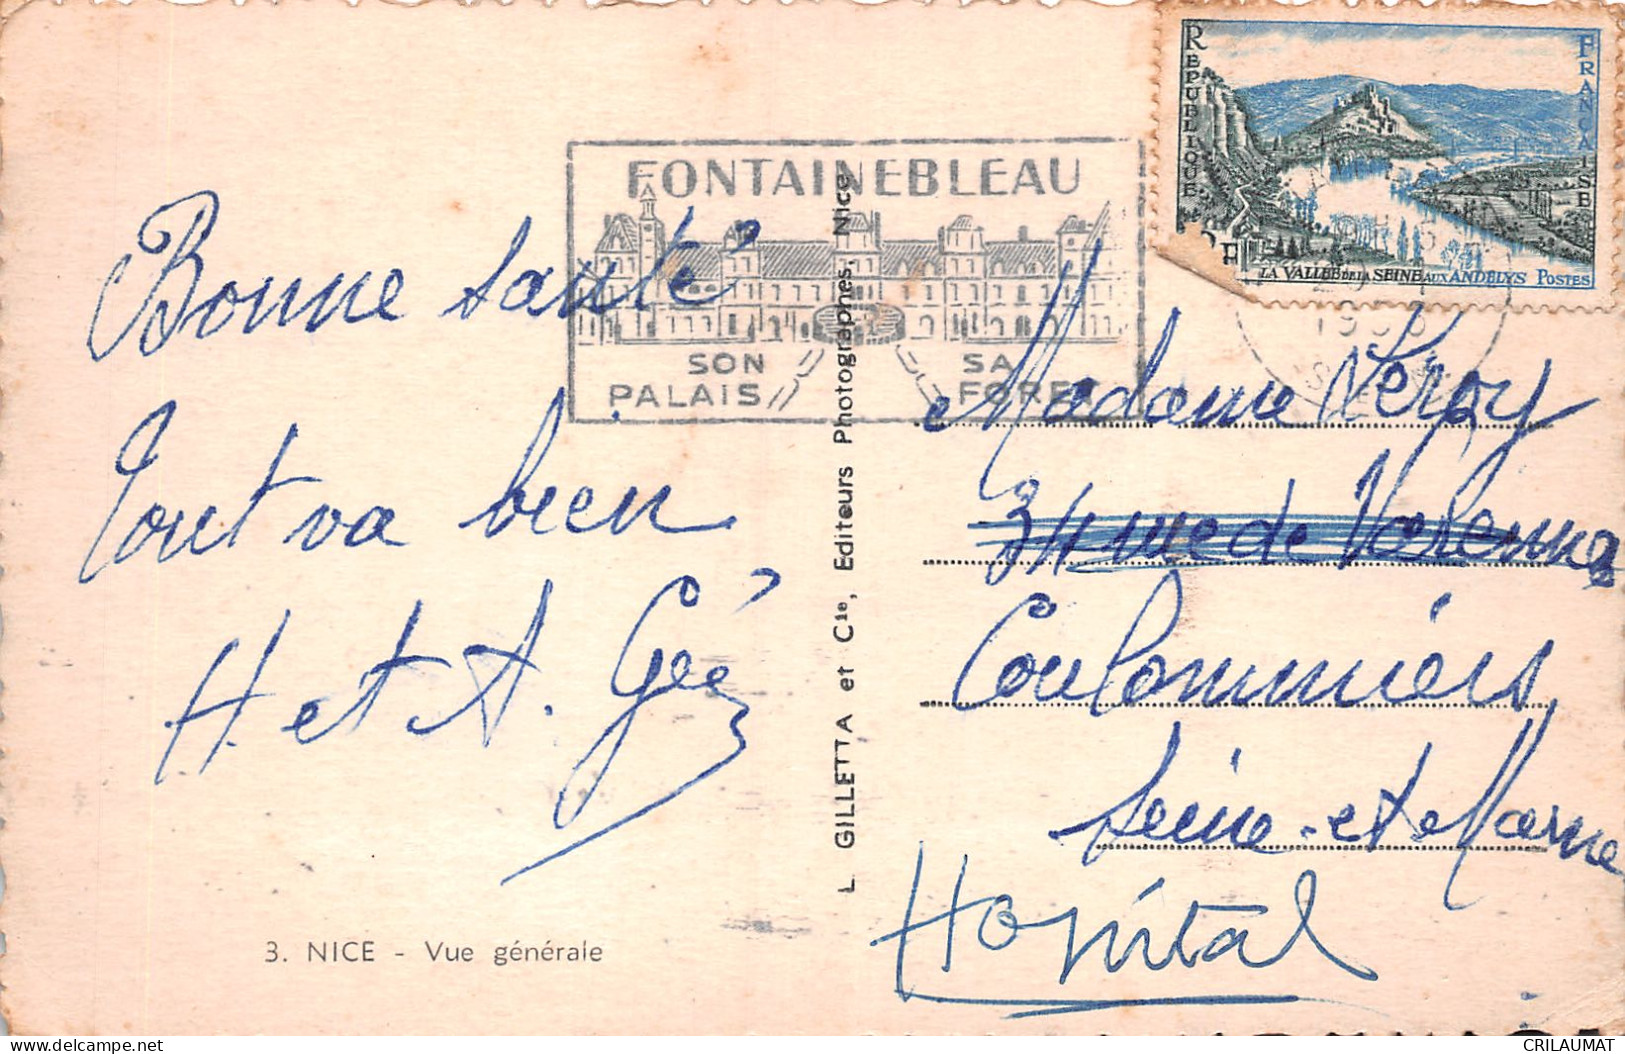 RÉPUBLIQUE FRANÇAISE
LA VALLÉE DE LA SEINE AUX ANDELYS POSTES
FONTAINEBLEAU
SON PALAIS
SA FORET
Bonne santé
Tout va bien
H. et A. Gée
3. NICE - Vue générale
L. GILLETTA et Cie, Editeurs Photographes, Nice
Madame Leroy
34 rue de Varenne
Coulommiers
Seine-et-Marne
Hopital
delcampe.net
CRILAUMAT